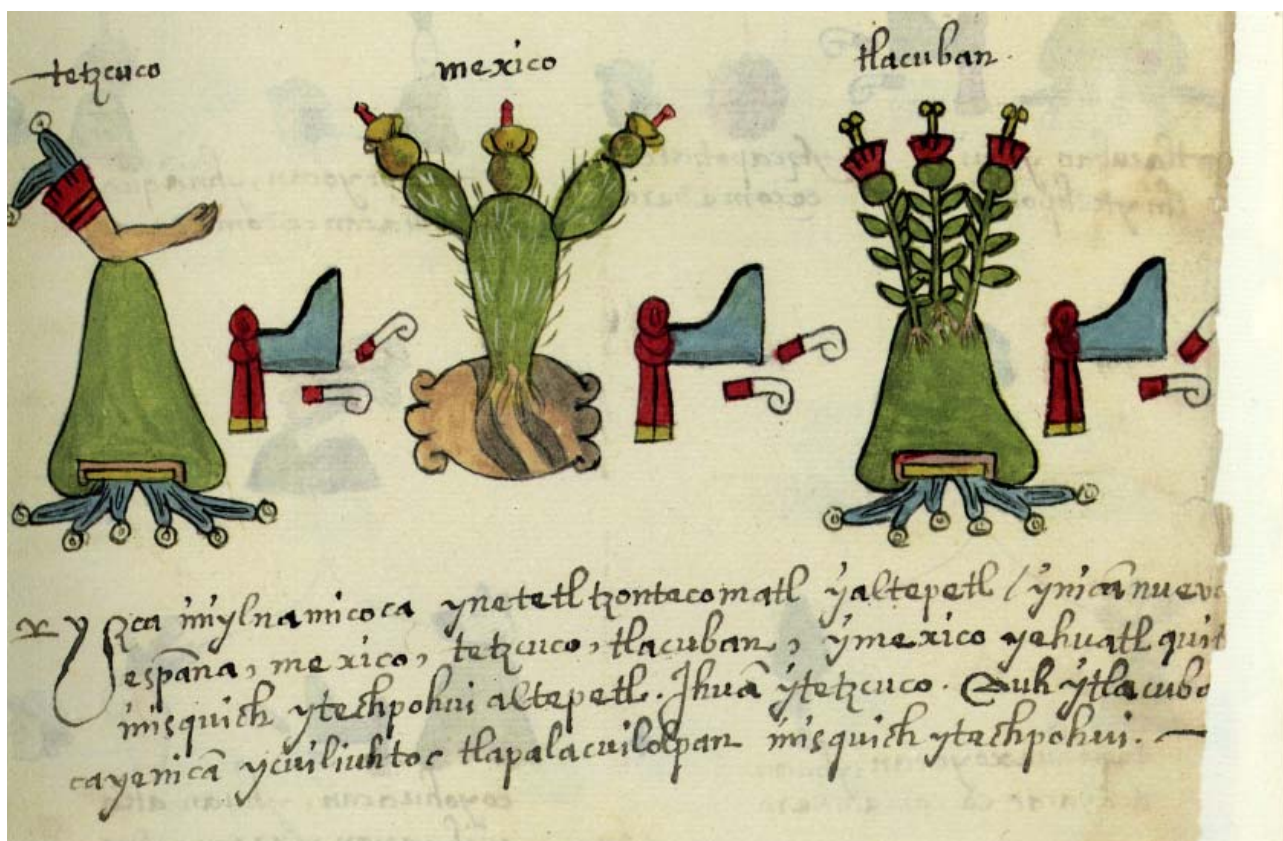 tetzcuco
mexico
tlacuban
Yzca inylnamicoca ynetetl tzontecomatl yaltepetl / ynicā nuev
espāna, mexico, tetzcuco, tlacuban, ymexico yehuatl quit
inisquich ytechpohui altepetl. Ihuā ytetzcuco. Auh ytlacuba
cayenicā ycuiliuhtoc tlapalacuilolpan inisquich ytechpohui.